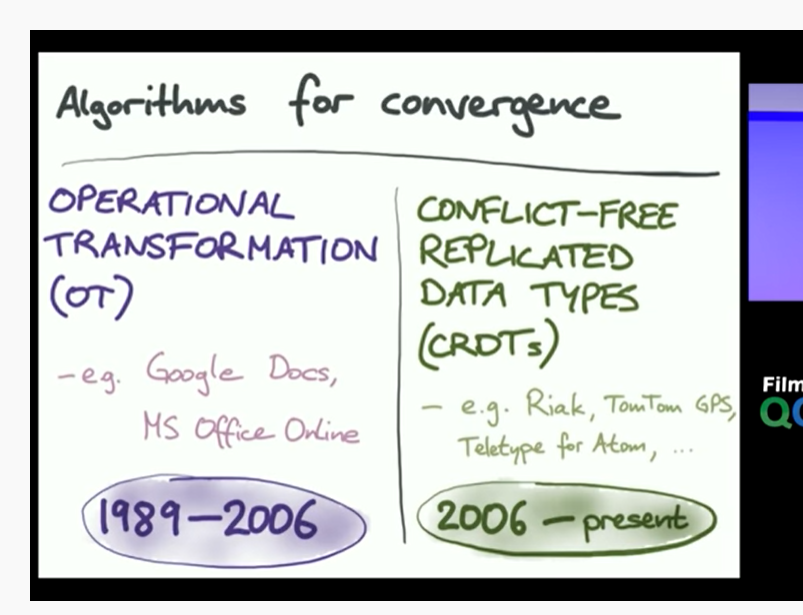 Algorithms for convergence
OPERATIONAL
TRANSFORMATION
(OT)
-e.g. Google Docs,
MS Office Online
1989-2006
CONFLICT-FREE
REPLICATED
DATA TYPES
(CRDTs)
- e.g. Riak, TomTom GPS,
Teletype for Atom, ...
2006 - present
Film